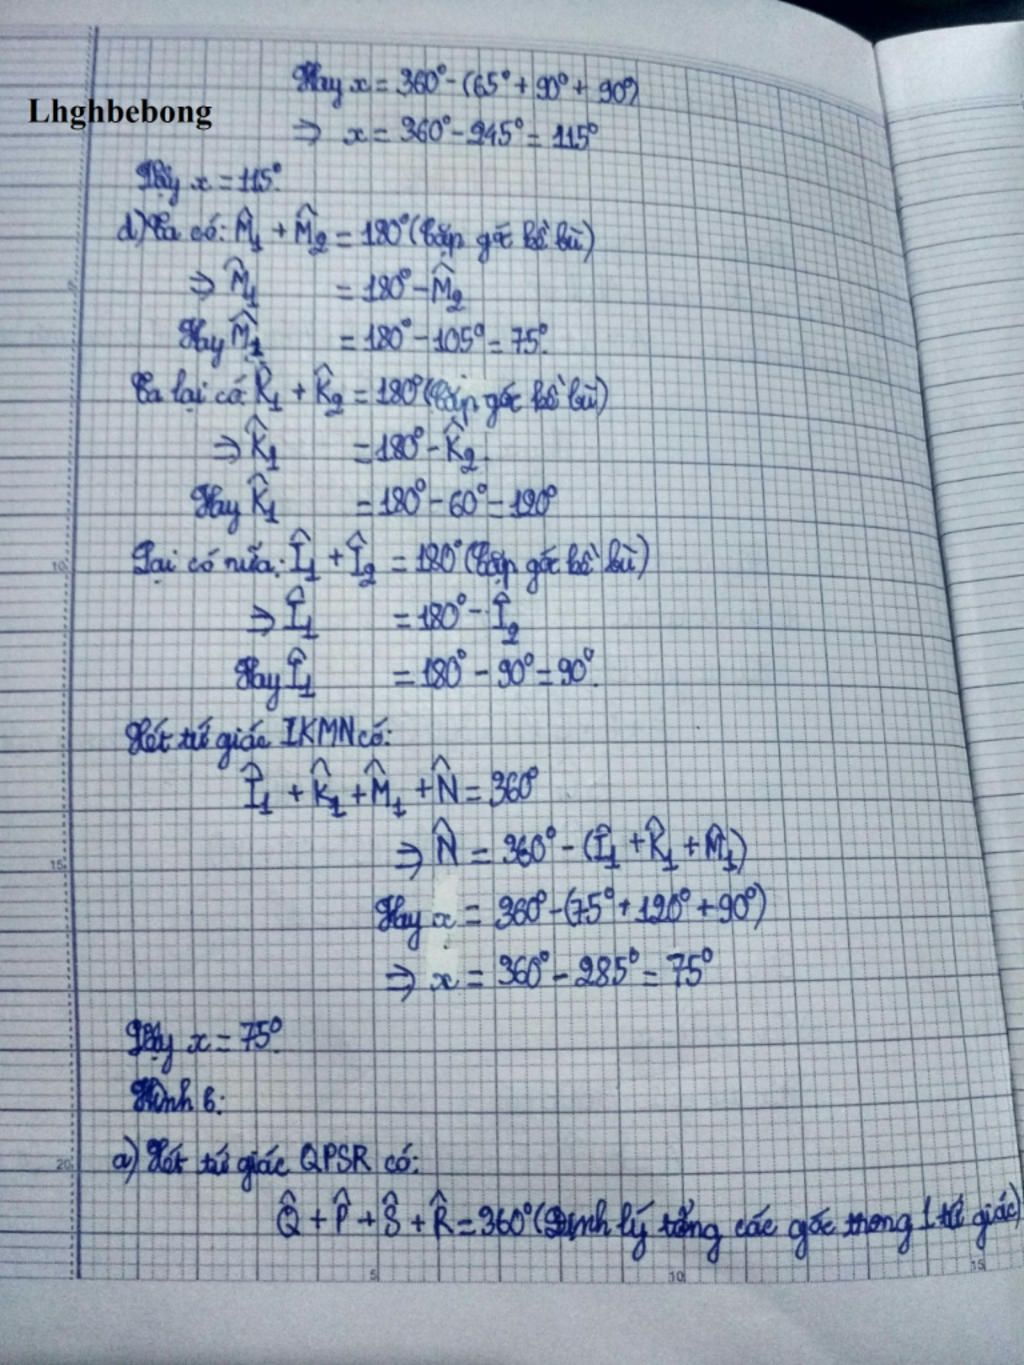 Hay x = 360° - (65° + 90° + 90°)
Lhghbebong
⇒ x = 360° - 245° = 115°
Vậy x = 115°.
d) Ta có: M̂₁ + M̂₂ = 180° (Cặp góc kề bù)
⇒ M̂₁ = 180° - M̂₂
Hay M̂₁ = 180° - 105° = 75°.
Ta lại có: K̂₁ + K̂₂ = 180° (Cặp góc kề bù)
⇒ K̂₁ = 180° - K̂₂.
Hay K̂₁ = 180° - 60° = 120°
Lại có nữa: Î₁ + Î₂ = 180° (Cặp góc kề bù)
⇒ Î₁ = 180° - Î₂
Hay Î₁ = 180° - 90° = 90°.
Xét tứ giác IKMN có:
Î₁ + K̂₁ + M̂₁ + N̂ = 360°
⇒ N̂ = 360° - (Î₁ + K̂₁ + M̂₁)
Hay x = 360° - (75° + 120° + 90°)
⇒ x = 360° - 285° = 75°
Vậy x = 75°.
Hình 6:
a) Xét tứ giác QPSR có:
Q̂ + P̂ + Ŝ + R̂ = 360° (Định lý tổng các góc trong 1 tứ giác)
10
15
20
5
10
15